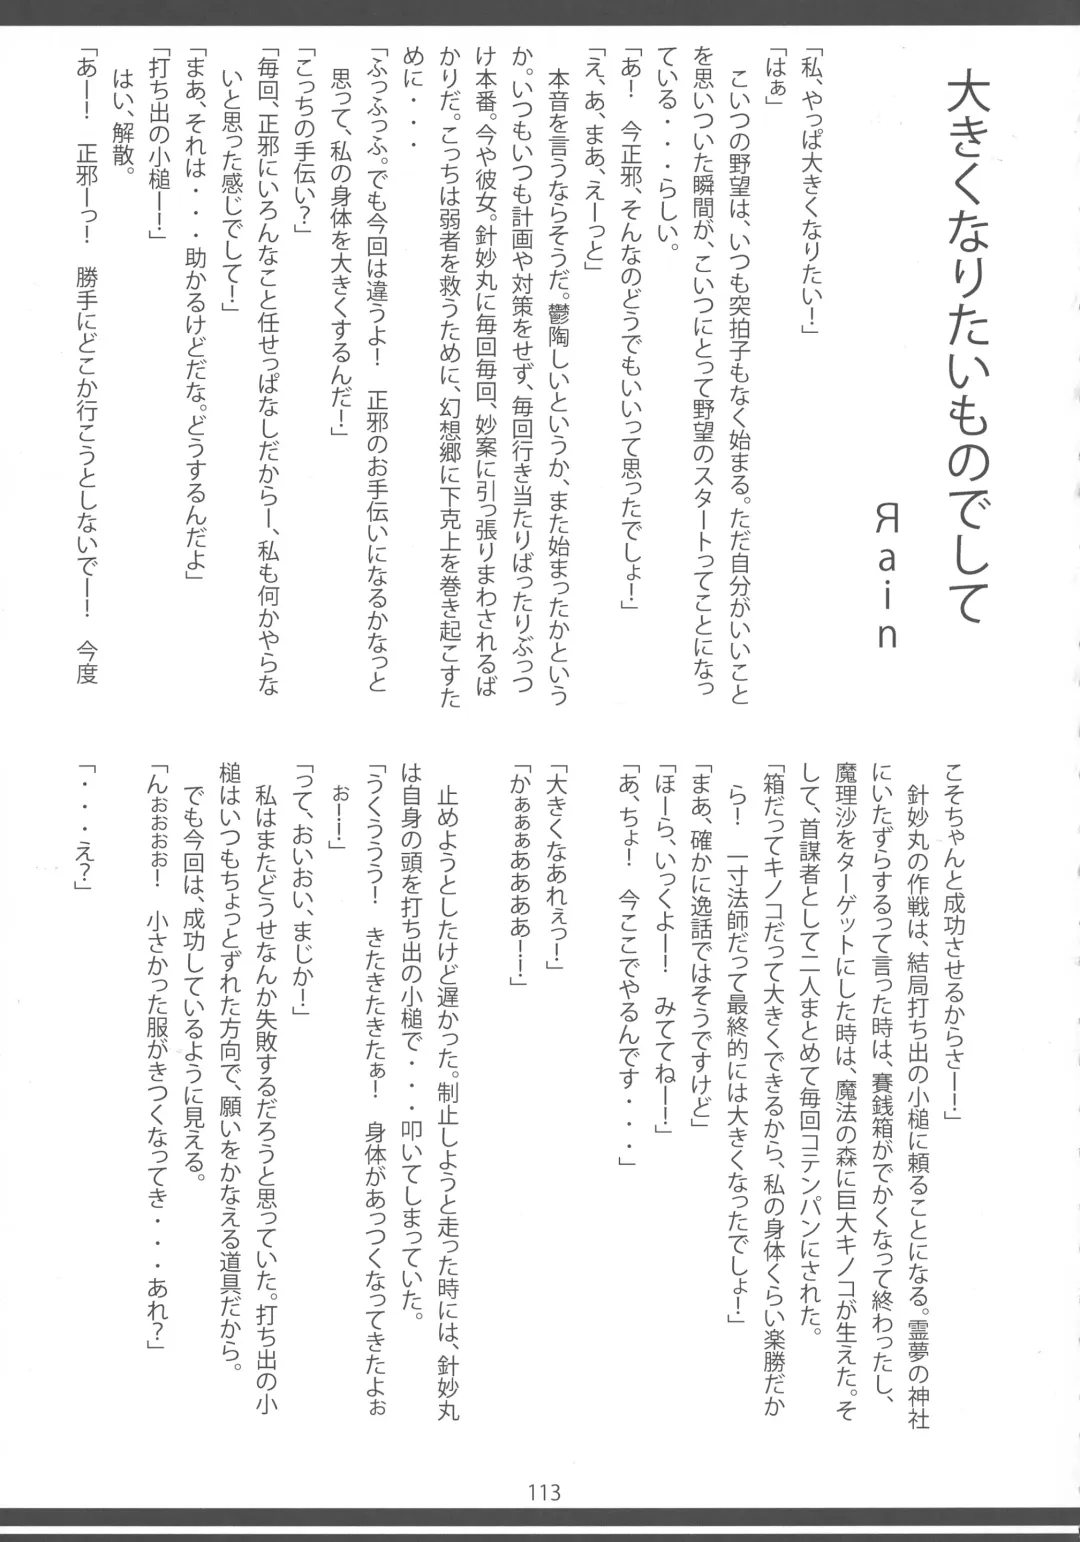 大きくなりたいものでして
Яain
「私、やっぱ大きくなりたい！」
「はぁ」
こいつの野望は、いつも突拍子もなく始まる。ただ自分がいいこと
を思いついた瞬間が、こいつにとって野望のスタートってことになっ
ている・・・らしい。
「あ！　今正邪、そんなのどうでもいいって思ったでしょ！」
「え、あ、まあ、えーっと」
本音を言うならそうだ。鬱陶しいというか、また始まったかという
か。いつもいつも計画や対策をせず、毎回行き当たりばったりぶっつ
け本番。今や彼女。針妙丸に毎回毎回、妙案に引っ張りまわされるば
かりだ。こっちは弱者を救うために、幻想郷に下克上を巻き起こすた
めに・・・
「ふっふっふ。でも今回は違うよ！　正邪のお手伝いになるかなっと
思って、私の身体を大きくするんだ！」
「こっちの手伝い？」
「毎回、正邪にいろんなこと任せっぱなしだからー、私も何かやらな
いと思った感じでして！」
「まあ、それは・・・助かるけどだな。どうするんだよ」
「打ち出の小槌ー！」
はい、解散。
「あー！　正邪ーっ！　勝手にどこか行こうとしないでー！　今度
こそちゃんと成功させるからさー！」
針妙丸の作戦は、結局打ち出の小槌に頼ることになる。霊夢の神社
にいたずらするって言った時は、賽銭箱がでかくなって終わったし、
魔理沙をターゲットにした時は、魔法の森に巨大キノコが生えた。そ
して、首謀者として二人まとめて毎回コテンパンにされた。
「箱だってキノコだって大きくできるから、私の身体くらい楽勝だか
ら！　一寸法師だって最終的には大きくなったでしょ！」
「まあ、確かに逸話ではそうですけど」
「ほーら、いっくよー！　みててねー！」
「あ、ちょ！　今ここでやるんです・・・」
「大きくなあれぇっ！」
「かぁぁぁああああ！！」
止めようとしたけど遅かった。制止しようと走った時には、針妙丸
は自身の頭を打ち出の小槌で・・・叩いてしまっていた。
「うくううう！　きたきたきたぁ！　身体があっつくなってきたよぉ
ぉー！」
「って、おいおい、まじか！」
私はまたどうせなんか失敗するだろうと思っていた。打ち出の小
槌はいつもちょっとずれた方向で、願いをかなえる道具だから。
でも今回は、成功しているように見える。
「んぉぉぉぉ！　小さかった服がきつくなってき・・・あれ？」
「・・・え？」
113